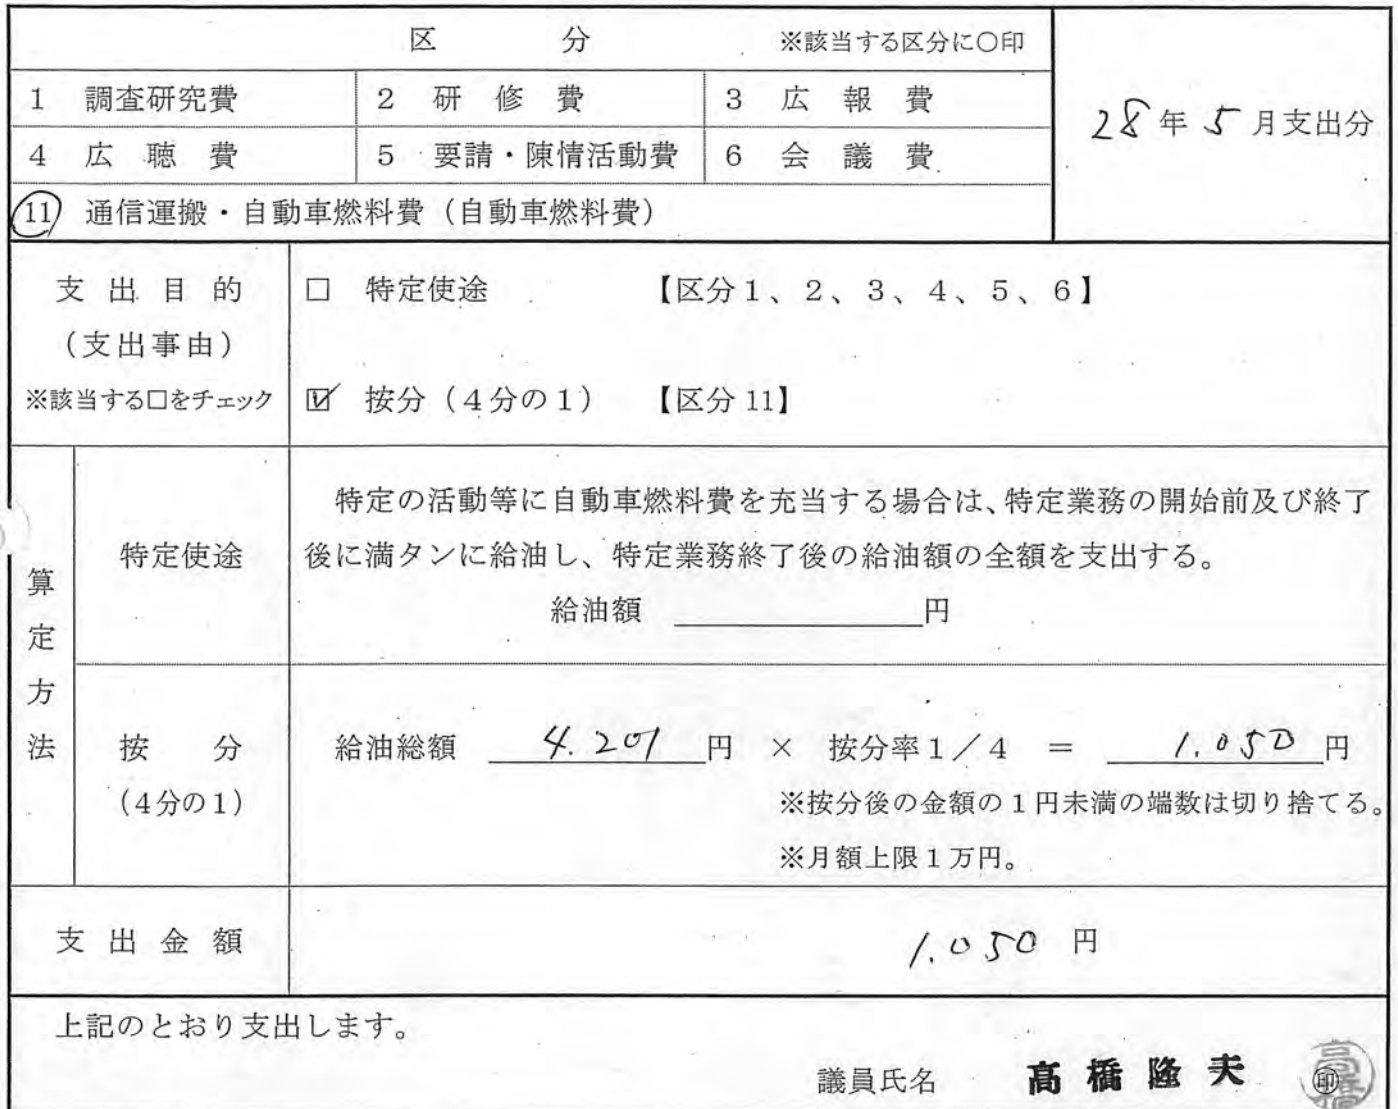 区 分 ※該当する区分に○印
28年5月支出分
1 調査研究費 2 研修費 3 広報費
4 広聴費 5 要請・陳情活動費 6 会議費
11 通信運搬・自動車燃料費(自動車燃料費)
支出目的
(支出事由)
※該当する□をチェック
□ 特定使途 【区分1、2、3、4、5、6】
☑ 按分(4分の1) 【区分11】
算定方法
特定使途
特定の活動等に自動車燃料費を充当する場合は、特定業務の開始前及び終了
後に満タンに給油し、特定業務終了後の給油額の全額を支出する。
給油額 円
按分
(4分の1)
給油総額 4.201円 × 按分率1/4 = 1.050円
※按分後の金額の1円未満の端数は切り捨てる。
※月額上限1万円。
支出金額 1.050円
上記のとおり支出します。
議員氏名 高橋隆夫 ㊞